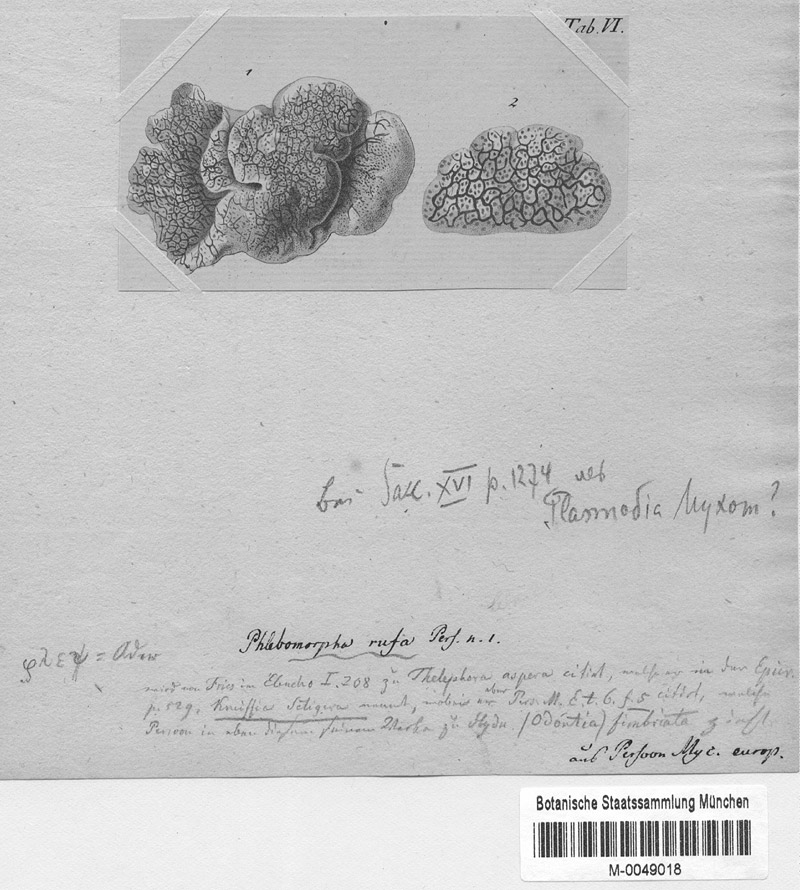 Tab. VI.
1
2
bei Sacc. XVI p. 1274 als
Plasmodia Myxom?
Phlebomorpha rufa Pers. n. 1.
φλεψ = Ader
wird von Fries im Elencho I. 208 zu Thelephora aspera citirt, welche er in der Epicr.
p. 529. Kneiffia setigera nennt, wobei er aber Pers. M. E. t. 6. f. 5 citirt, welche
Persoon in eben diesem seinem Werke zu Hydn (Odontia) fimbriata zieht.
aus Persoon Myc. europ.
Botanische Staatssammlung München
M-0049018